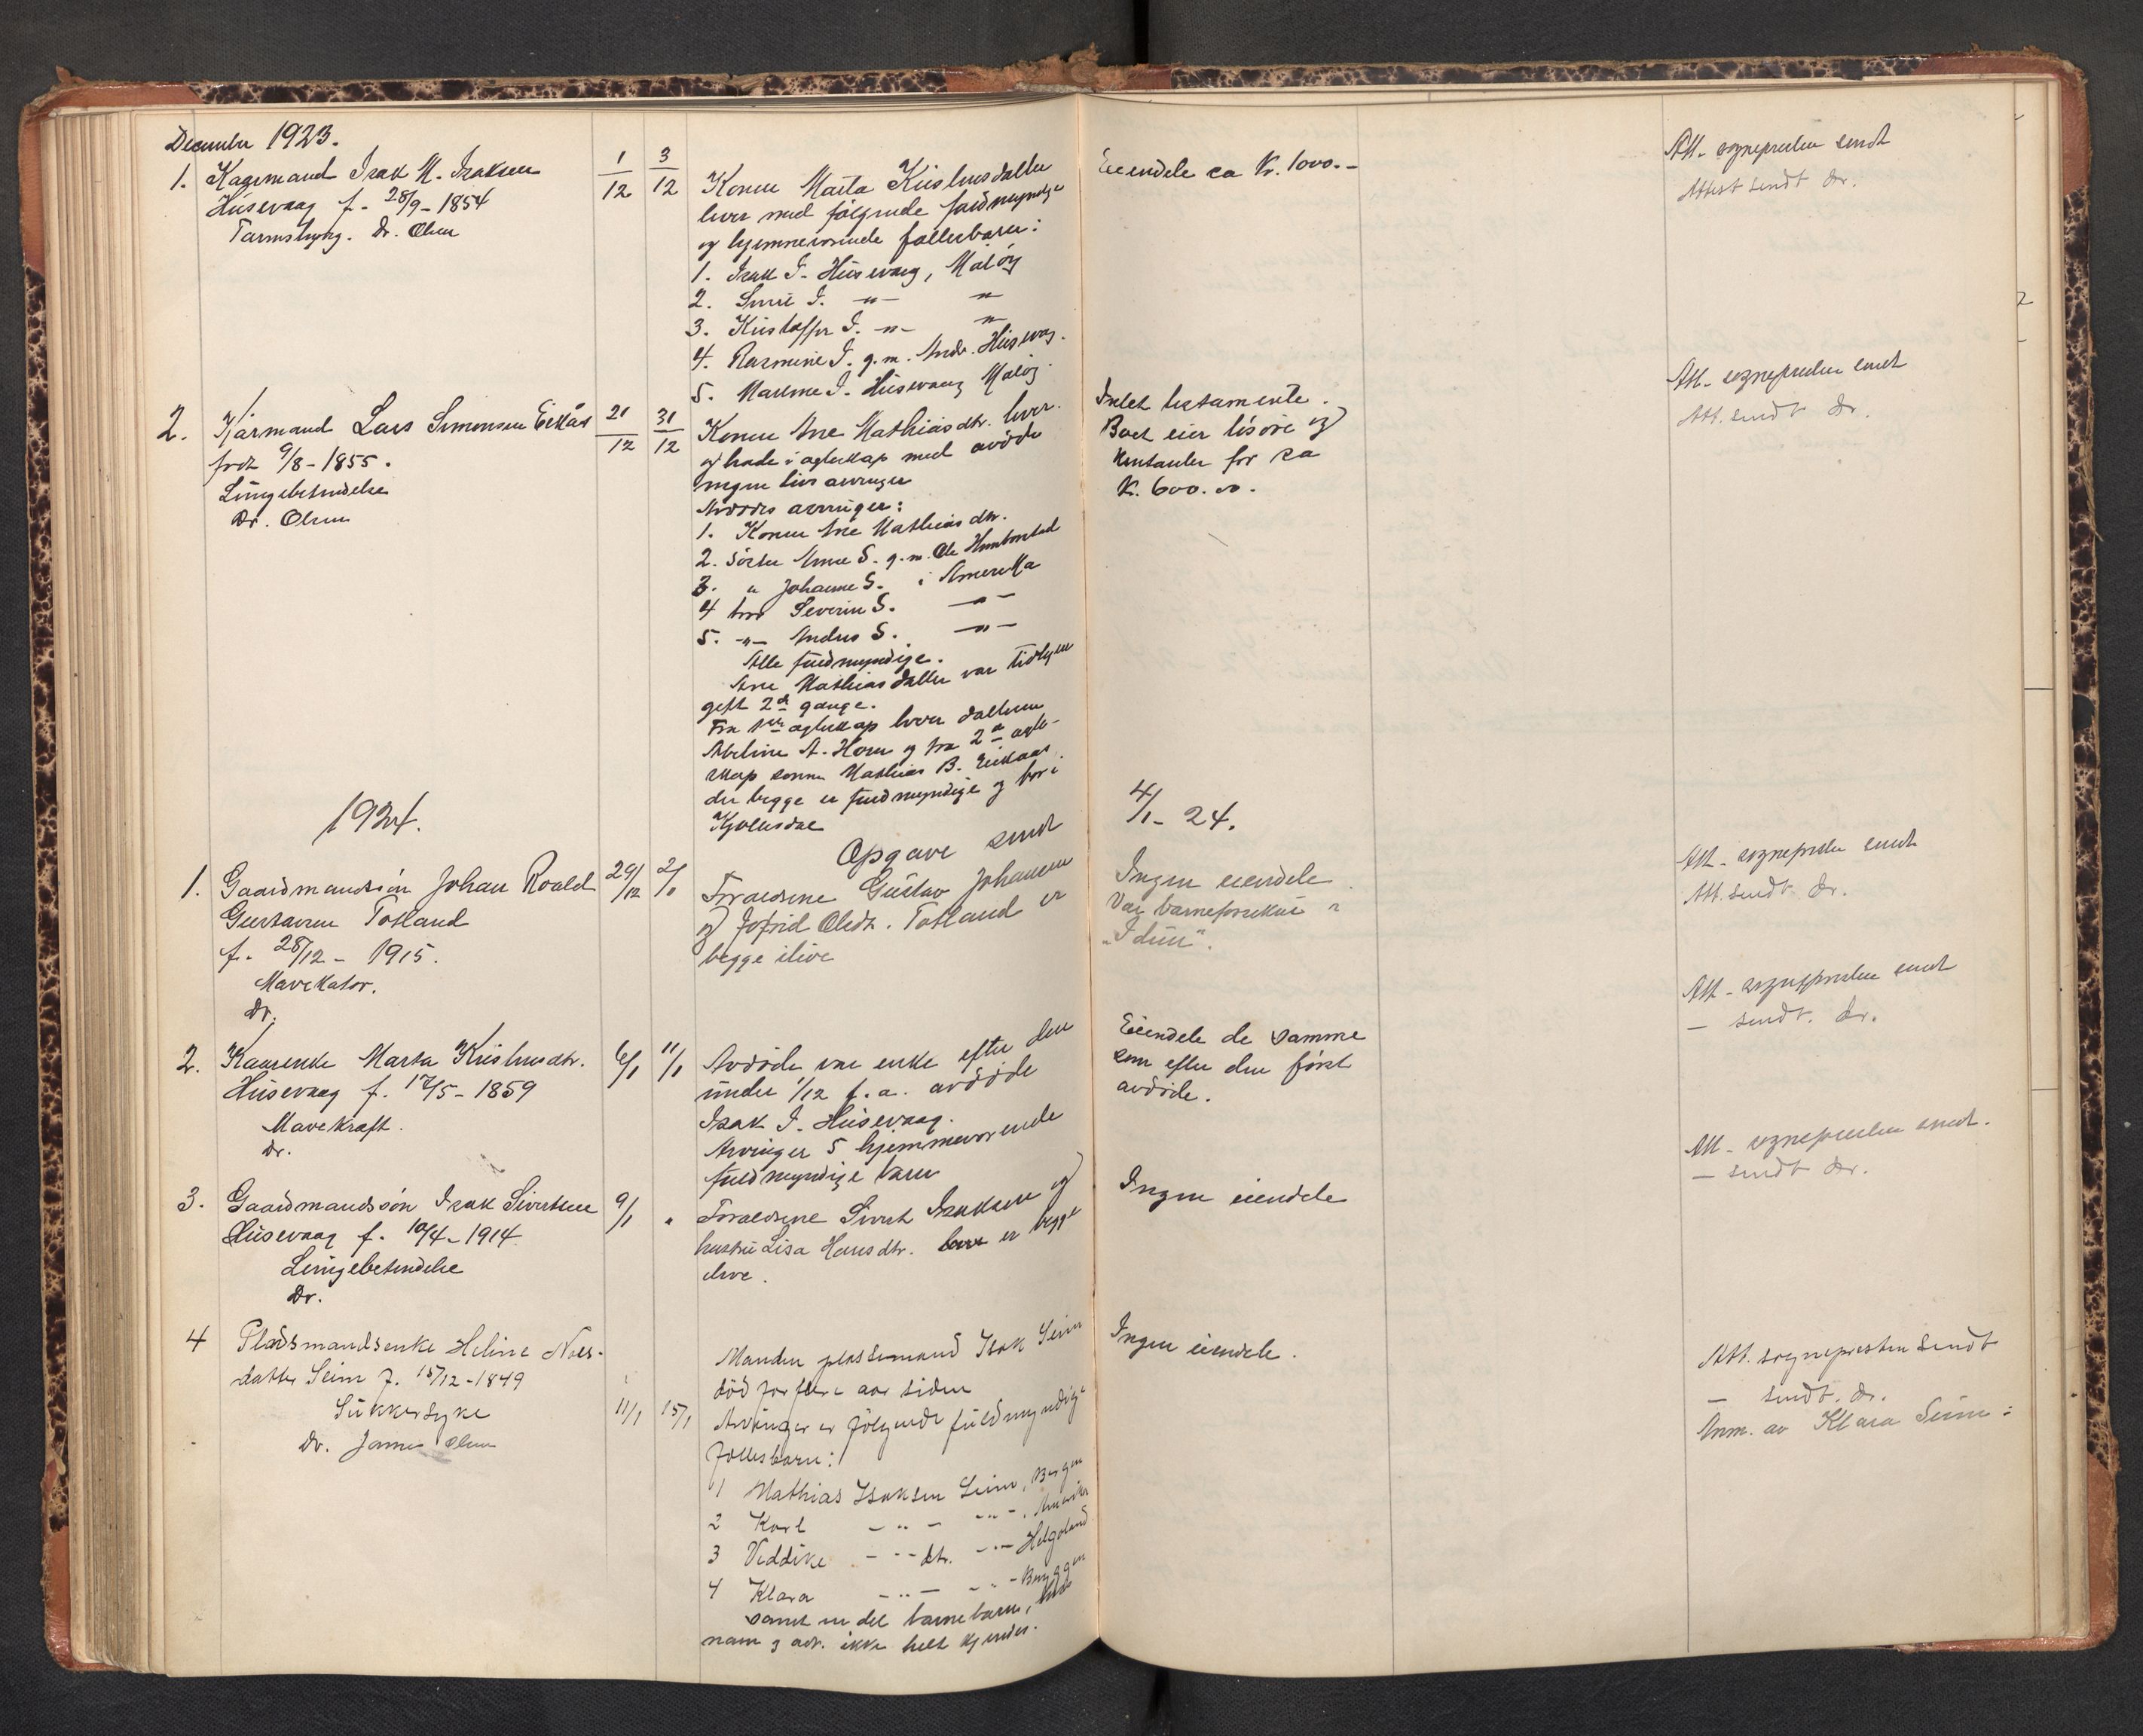 December 1923.
1. Kaarmand Isak M. Isaksen
Húsevaag f. 28/9-1854
Tarmslyng. Dr. Olsen
1/12 3/12
Konen Marta Kristensdatter
lever med følgende fuldmyndige
og hjemmeværende fællesbarn:
1. Isak I. Húsevaag, Måløy
2. I. -"- "
3. Kristoffer I. -"- "
4. Rasmine I. g.m. Andr. Húsevåg.
5. I. Húsevaag Måløy.
Eiendele ca Kr. 1000.-
Att. sognepresten sendt
Attest sendt Dr.
2. Kårmand Lars Simonsen Eikås
født 9/8-1855.
Lúngebetendelse
Dr. Olsen
21/12 31/12
Konen Ane Mathiasdtr. lever.
og hade i ægteskap med avdøde
ingen livsarvinger
Avdødes arvinger:
1. Konen Ane Mathiasdtr.
2. Søster Anne S. g.m. Ole
3. " Johanne S. i Amerika
4 bror Severin S. -"-
5. -"- Andres S. -"-
Alle fuldmyndige.
Ane Mathiasdatter var tidligere
gift 2de gange.
Fra 1ste ægteskap lever datteren
Abeline A. Horn og fra 2det ægte-
skap sønnen Mathias B. Eickaas
der begge er fuldmyndige og bor i
Kjølsdal
Intet testamente.
Boet eier løsøre og
kontanter for ca
Kr. 600.00.
Att. sognepresten sendt
Att. sendt Dr.
1924.
Opgave sendt
4/1-24.
1. Gaardmandsøn Johan Roald
Gustavsen Totland
f. 28/12-1915.
Mavekatar.
Dr.
29/12 2/1
Forældrene Gústav Johansen
og Jofrid Olsdtr. Totland er
begge ilive
Ingen eiendele.
Var barneforsikret i
"Idun".
Att. sognepresten sendt
Att. sendt Dr.
2. Kaarenke Marta Kristensdtr.
Húsevaag f. 17/5-1859
Mavekræft.
Dr.
6/1 11/1
Avdøde var enke efter den
únder 1/12 f.a. avdøde
Isak I. Húsevaag.
Arvinger 5 hjemmeværende
fuldmyndige barn
Eiendele de samme
som efter den først
avdøde.
Att. sognepresten sendt
— sendt. Dr.
3. Gaardmandssøn Isak Sivertsen
Húsevaag f. 10/4-1914
Lúngebetendelse
Dr.
9/1 "
Forældrene Sivert Isaksen og
hustrú Lisa Hansdtr. er begge
ilive.
Ingen eiendele
Att. sognepresten sendt.
— sendt Dr.
4 Pladsmandsenke Heline Nils-
datter Seim f. 15/12-1849
Súkkersyke
Dr. James Olsen
11/1 15/1
Manden plassemand Isak Seim
død for flere aar siden
Arvinger er følgende fuldmyndige
fællesbarn:
1 Mathias Isaksen Seim, Bergen
2 Karl -"- -"-, Amerika
3 Veddike -"- dtr. -"- Helgoland
4 Klara -"- -"- Bryggen
samt en del barnebarn, hvis
navn og adr. ikke helt kjendes.
Ingen eiendele.
Att. sognepresten sendt
— sendt. Dr.
Anm. av Klara Seim: